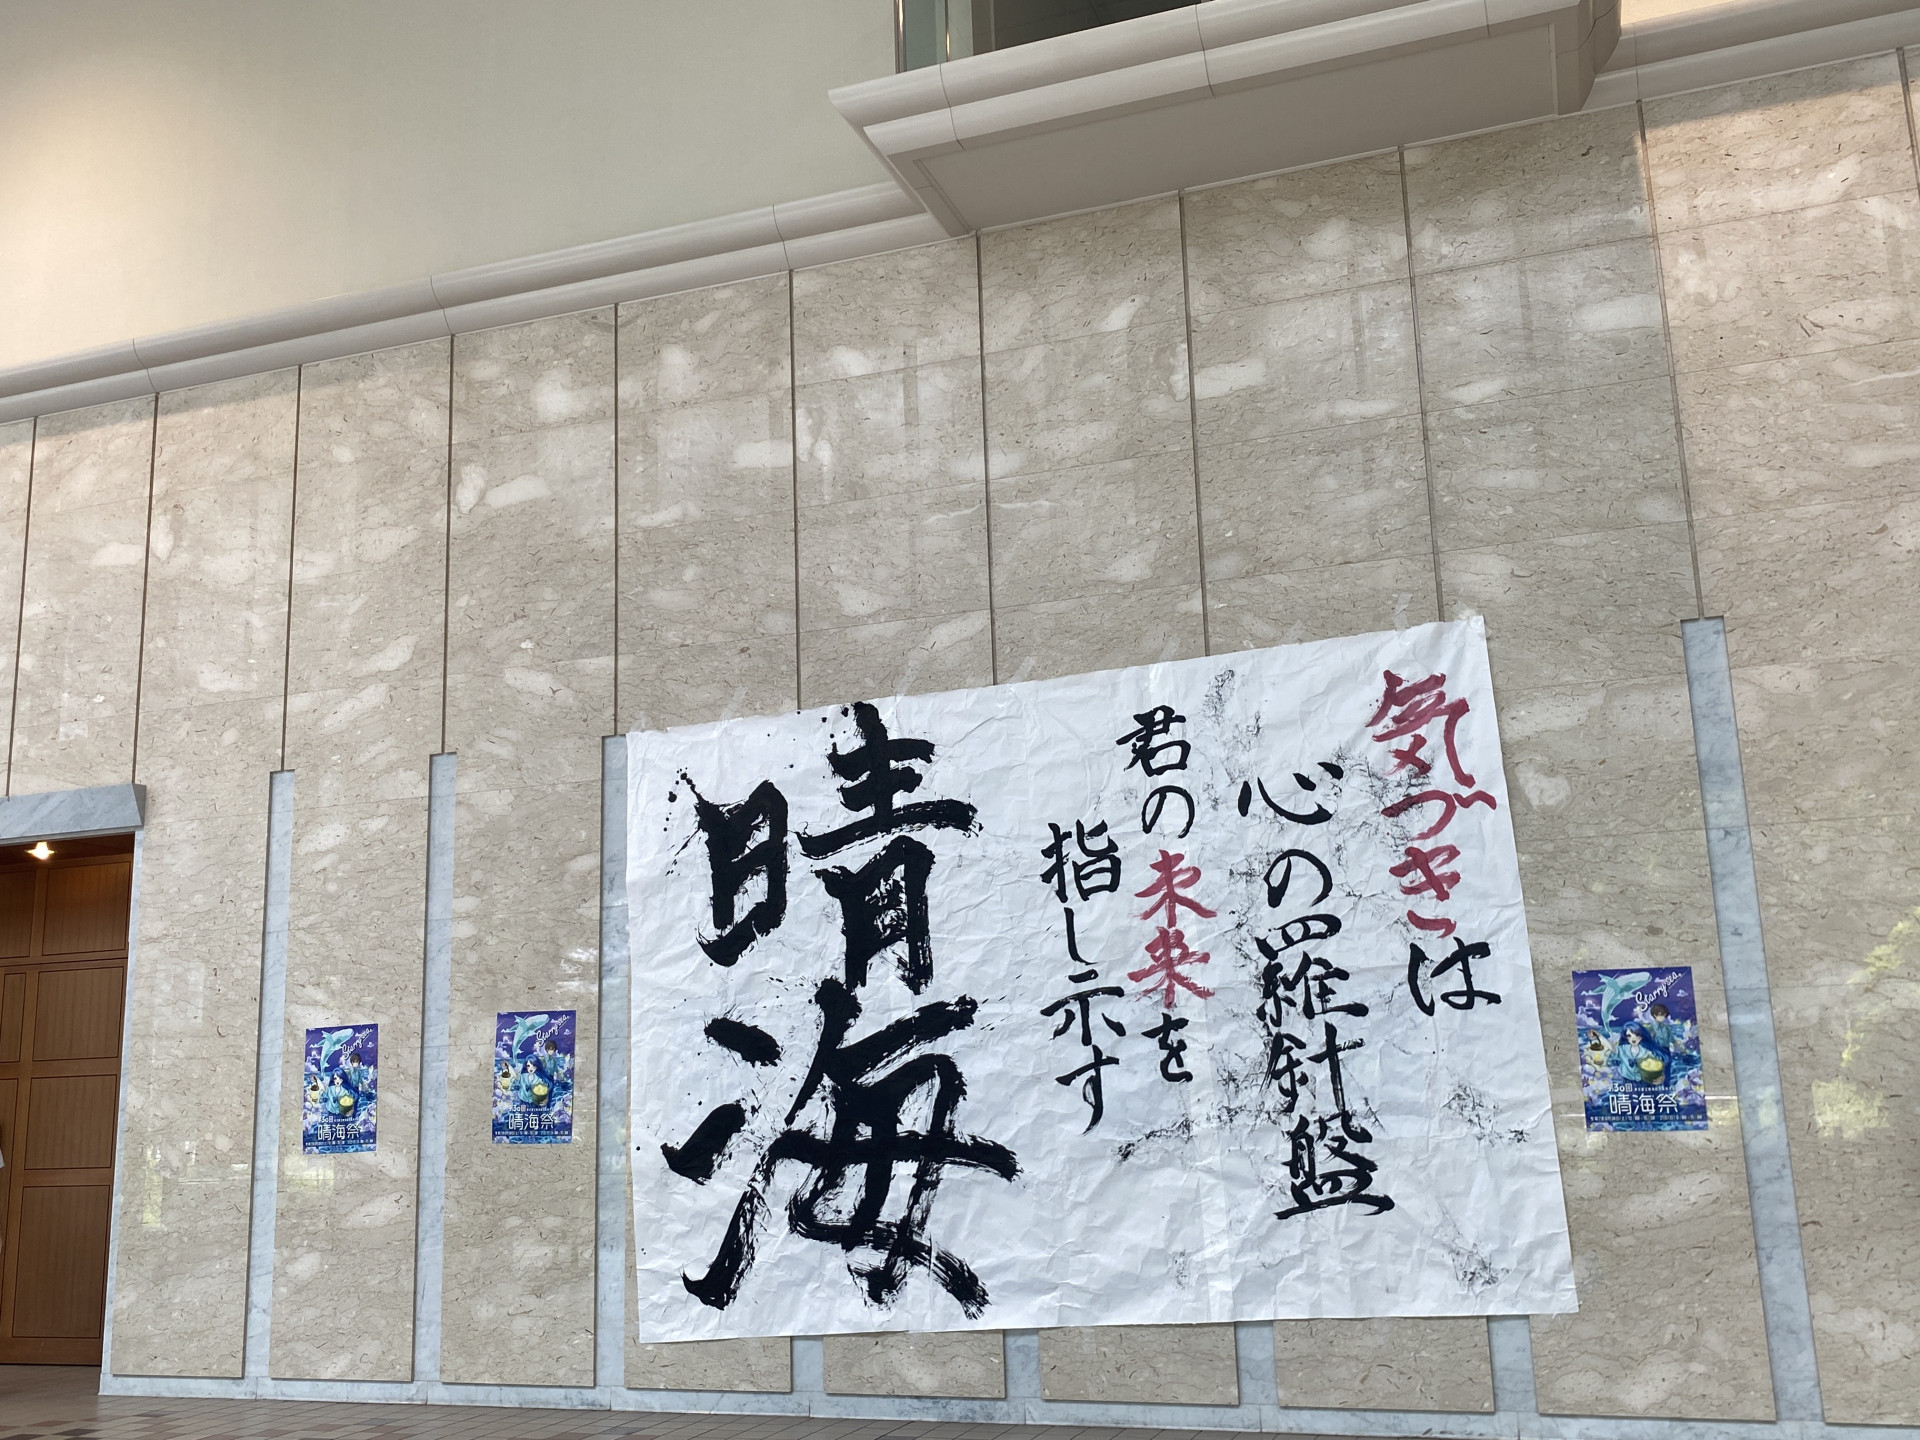 気づきは
心の羅針盤
君の未来を
指し示す
晴海
Starry sea
第30回
晴海祭
Starry sea
第30回
晴海祭
Starry sea
第30回
晴海祭